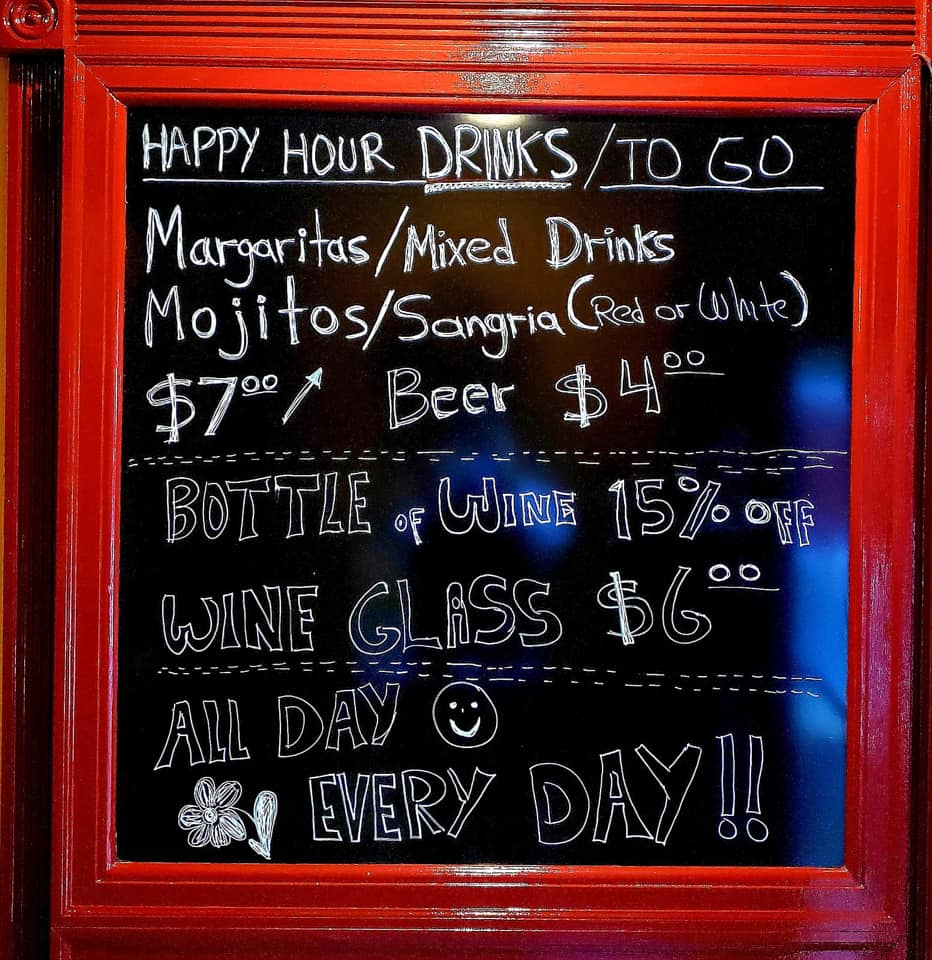 HAPPY HOUR DRINKS / TO GO
Margaritas/Mixed Drinks
Mojitos/Sangria (Red or White)
$7⁰⁰ ↗ Beer $4⁰⁰
BOTTLE OF WINE 15% OFF
WINE GLASS $6⁰⁰
ALL DAY
EVERY DAY!!